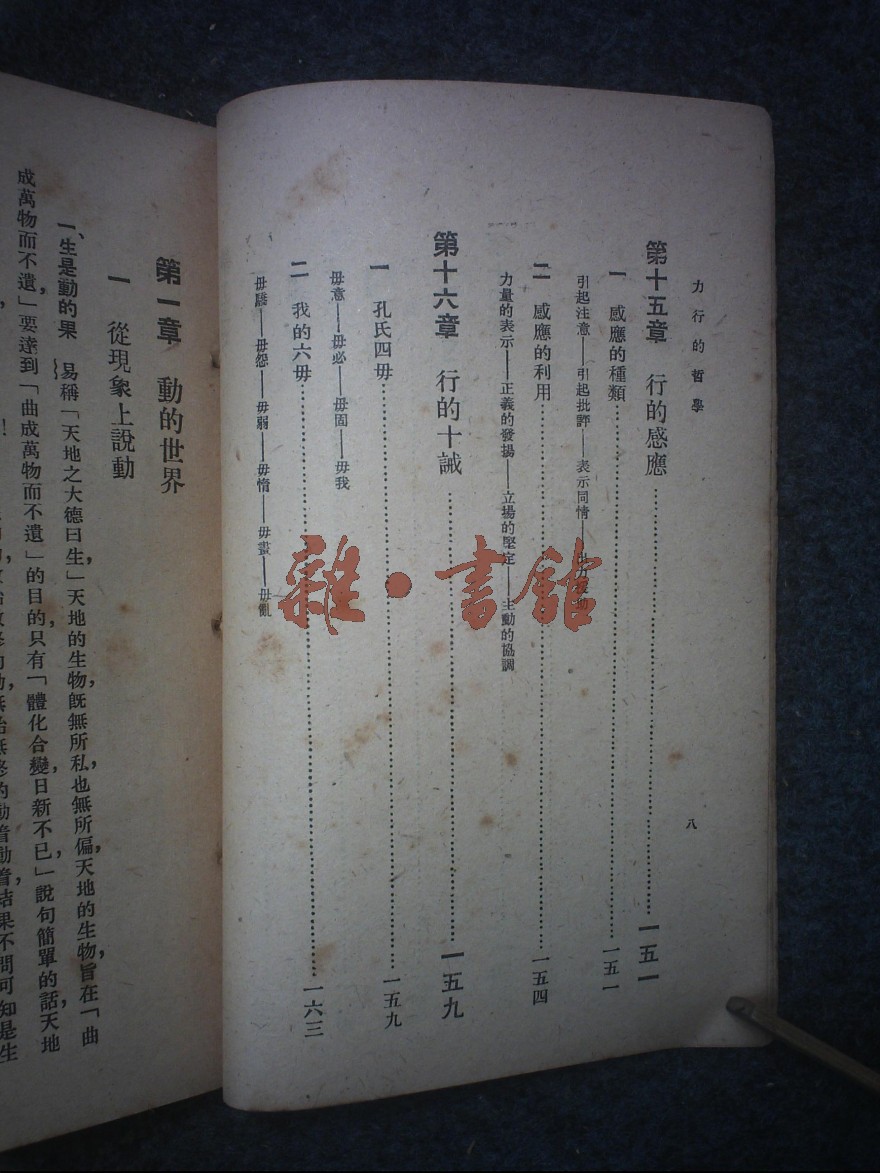 力行的哲學
八
第十五章 行的感應……一五一
一 感應的種類……一五一
引起注意——引起批評——表示同情——出力援助
二 感應的利用……一五四
力量的表示——正義的發揚——立場的堅定——主動的協調
第十六章 行的十誡……一五九
一 孔氏四毋……一五九
毋意——毋必——毋固——毋我
二 我的六毋……一六三
毋驕——毋怨——毋弱——毋惰——毋畫——毋亂
雜·書館
第一章 動的世界
一 從現象上說動
一、生是動的果 易稱「天地之大德曰生」天地的生物,既無所私,也無所偏,天地的生物,旨在「曲
成萬物而不遺」要達到「曲成萬物而不遺」的目的,只有「體化合變,日新不已」說句簡單的話,天地